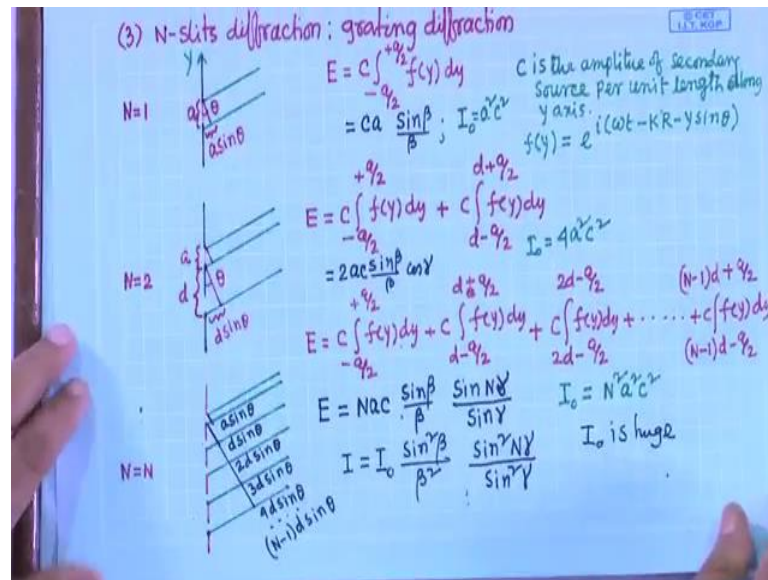 © CET
I.I.T. KGP
(3) N-slits diffraction: grating diffraction
y
N=1
a
θ
a sinθ
E = C∫_{-a/2}^{+a/2} f(y) dy
= ca sinβ/β ; I₀=a²c²
C is the amplitue of secondary
source per unit length along
y axis.
f(y) = e^{i(ωt-KR-ysinθ)}
N=2
a
d
θ
dsinθ
E = C∫_{-a/2}^{+a/2} f(y)dy + C∫_{d-a/2}^{d+a/2} f(y)dy
= 2ac sinβ/β cosγ
I₀ = 4a²c²
E = C∫_{-a/2}^{+a/2} f(y)dy + C∫_{d-a/2}^{d+a/2} f(y)dy + C∫_{2d-a/2}^{2d-a/2} f(y)dy + ...... + C∫_{(N-1)d-a/2}^{(N-1)d+a/2} f(y)dy
N=N
asinθ
dsinθ
2dsinθ
3dsinθ
4dsinθ
(N-1)dsinθ
E = Nac sinβ/β sinNγ/sinγ
I₀ = N²a²c²
I = I₀ sin²β/β² sin²Nγ/sin²γ
I₀ is huge